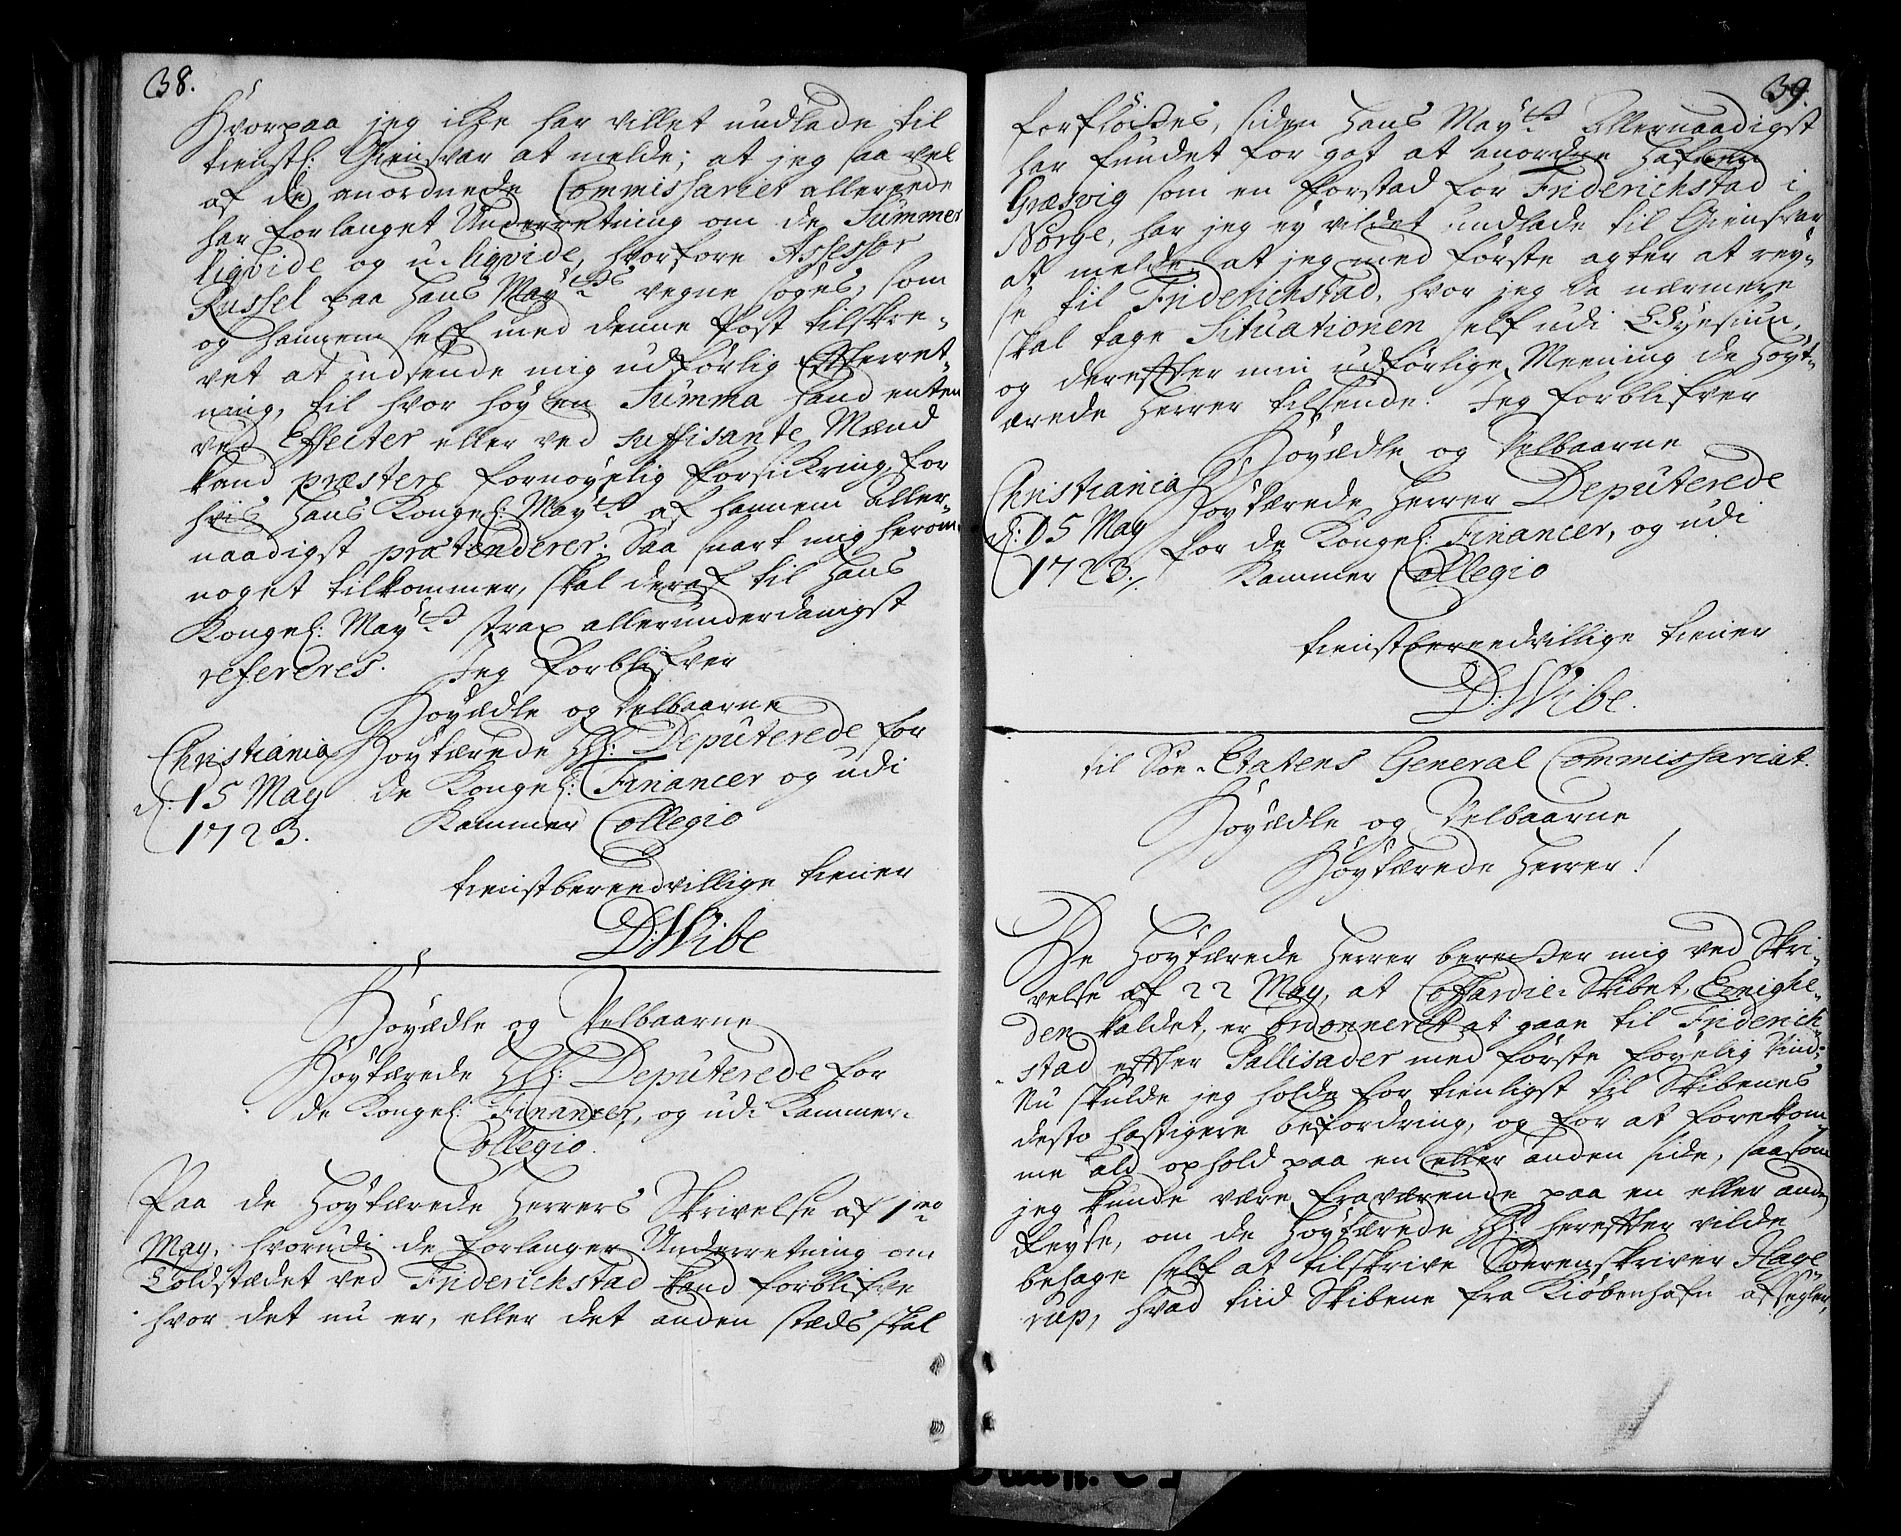 38.
Hvorpaa jeg icke har villet undlade til
tienstl: Giensvar at melde; at jeg saa vel
af de anordnede Commissarier allereede
har forlanget Underretning om de Summer
liqvide og u-liqvide, hvorfore Assessor
Russel paa Hans Mayts vegne søges, som
og hannem self med denne Post tilskre-
vet at indsende mig udførlig Effterret-
ning, til hvor høy en Summa hand enten
ved Effecter eller ved suffisante Mænd
kand præstere fornøyelig forsickring, for
hvis Hans Kongel: Mayts af hannem Aller-
naadigst prætenderer; Saa snart mig herom
noget tilkommer, skal deraf til Hans
Kongel: Mayts strax allerunderdanigst
refereres. Jeg forblifver
Høyædle og Velbaarne
Christiania Høytærede HH: Deputerede for
d: 15 May de Kongel: Financer og udi
1723. Kammer Collegio
tienstbereedvillige tiener
D: Wibe
Høyædle og Velbaarne
Høytærede HH: Deputerede for
de Kongel: Financer, og udi Kammer-
Collegio.
Paa de Høytærede Herrers Skrivelse af 1mo
May, hvorudi de forlanger Underretning om
Toldstædet ved Friderichstad kand forblifve
hvor det nu er, eller det anden stæds skal
39.
forfløttes, siden Hans Mayts Allernaadigst
har fundet for got at anordne Hafnen
Græsvig som en Forstad for Friderichstad i
Norge, har jeg ey vildet undlade til Giensvar
at melde, at jeg med første agter at rey-
se til Friderichstad, hvor jeg da nærmere
skal tage Situationen self udi Øyesiun,
og dereffter min udførlige Meening de Høyt-
ærede Herrer tilsende. Jeg forblifver
Høyædle og Velbaarne
Christiania Høytærede Herrer Deputerede
d: 15 May for de Kongel: Financer, og udi
1723. Kammer Collegio
tienstbereedvillige tiener
D: Wibe.
til Søe-Etatens General Commissariat.
Høyædle og Velbaarne
Høytærede Herrer!
De Høytærede Herrer beretter mig ved Skri-
velse af 22 May, at Coffardie-Skibet, Eenighe-
den kaldet, er ordonneret at gaae til Friderich-
stad effter Pallisader med første føyelig Vind;
Nu skulde jeg holde for tienligst til Skibenes
desto hastigere befordring, og for at forekom-
me ald ophold paa en eller anden side, saasom
jeg kunde være fraværende paa en eller anden
Reyse, om de Høytærede HH: hereffter vilde
behage self at tilskrive Soerenskriver Hage-
rup, hvad tiid Skibene fra Kiøbenhafn afseyler,